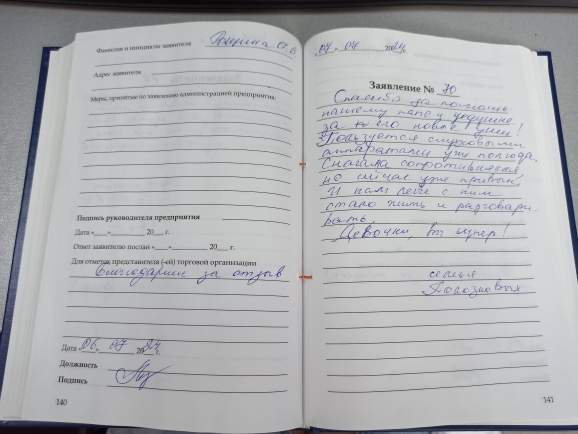 Фамилия и инициалы заявителя
Адрес заявителя
Меры, принятые по заявлению администрацией предприятия:
Подпись руководителя предприятия
Дата «___» ________ 20___ г.
Ответ заявителю послан «___» ________ 20___ г.
Для отметок представителя (-ей) торговой организации
Благодарим за отзыв
Дата «06» 07 2024 г.
Должность
Подпись
140
07 07 2024
Заявление № 70
Спасибо за помощь
нашему папе и дедушке
за его новые уши!
Пользуется слуховыми
аппаратами уже полгода.
Сначала сопротивлялся,
но сейчас уже привык,
И нам легче с ним
стало жить и разговари
вать.
Девочки, вы супер!
семья
141